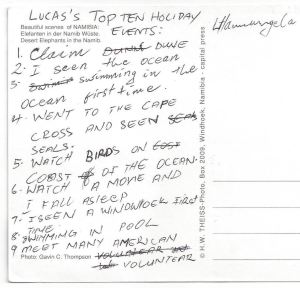 LUCAS'S TOP TEN HOLIDAY
Beautiful scenes of NAMIBIA:
Elefanten in der Namib Wüste.
Desert Elephants in the Namib.
EVENTS:
1. Claim DUNE
2. I SEEN the OCEAN
3. swimming in the
ocean first time.
4. WENT TO THE CAPE
CROSS AND SEEN
SEALS.
5. WATCH BIRDS ON
COOST OF THE OCEAN.
6. WATCH A MOVIE AND
I FALL ASLEEP
7. I SEEN A WINDHOEK FIRST
TIME
8. SWIMMING IN POOL
9 MEET MANY AMERICAN
Photo: Gavin C. Thompson
VOLUNTEAR
© H.W. THEISS-Photo, Box 2009, Windhoek, Namibia - capital press